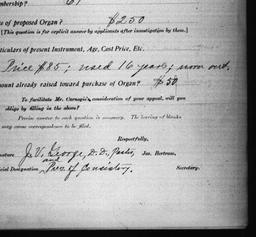 mbership? 67
e of proposed Organ? $250
[This question is for explicit answer by applicants after investigation by them.]
ticulars of present Instrument, Age, Cost Price, Etc.
Price $85; used 16 years; worn out.
ount already raised toward purchase of Organ? $50
To facilitate Mr. Carnegie's consideration of your appeal, will you
oblige by filling in the above?
Precise answer to each question is necessary. The leaving of blanks
may cause correspondence to be filed.
Respectfully,
nature J. V. George, D.D., Pastor, Jas. Bertram,
and
icial Designation Pres. of Consistory. Secretary.